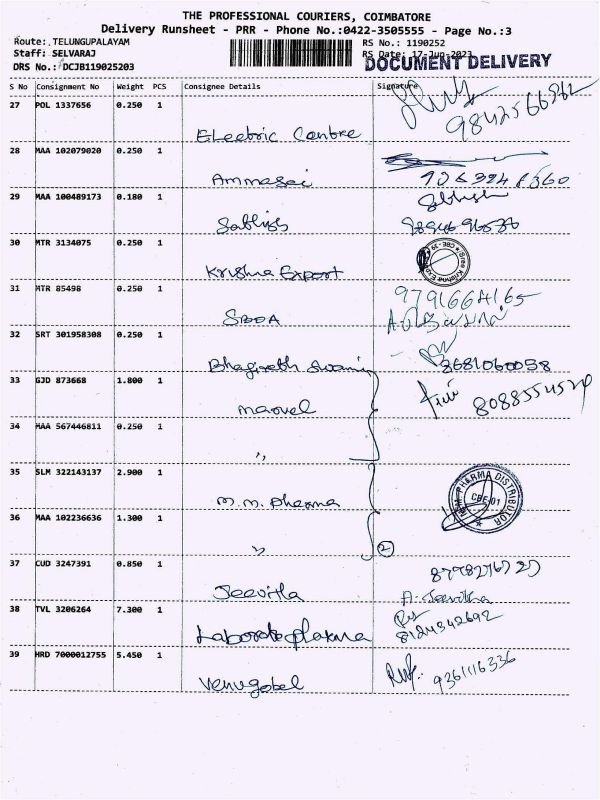 THE PROFESSIONAL COURIERS, COIMBATORE
Delivery Runsheet - PRR - Phone No.:0422-3505555 - Page No.:3
Route: TELUNGUPALAYAM RS No.: 1190252
Staff: SELVARAJ RS Date: 17-Jun-2023
DRS No.: DCJB119025203 DOCUMENT DELIVERY
S No Consignment No Weight PCS Consignee Details Signature
27 POL 1337656 0.250 1
Electric Centre
28 MAA 102079020 0.250 1
Ammasai
29 MAA 100489173 0.180 1
Sathish
30 MTR 3134075 0.250 1
Krishna Export
31 MTR 85498 0.250 1 9791664165
SBOA
32 SRT 301958308 0.250 1
Bhagirath Swami 8681060058
33 GJD 873668 1.800 1
Marvel
34 MAA 567446811 0.250 1
"
35 SLM 322143137 2.900 1
M.M. Pharma
PHARMA DISTRIBUTOR
CBE-01
36 MAA 102236636 1.300 1
" 2
37 CUD 3247391 0.850 1
Jeevitha A. Jeevitha
38 TVL 3206264 7.300 1
Laborate pharma 8124342692
39 HRD 7000012755 5.450 1 9361116336
Venugobal